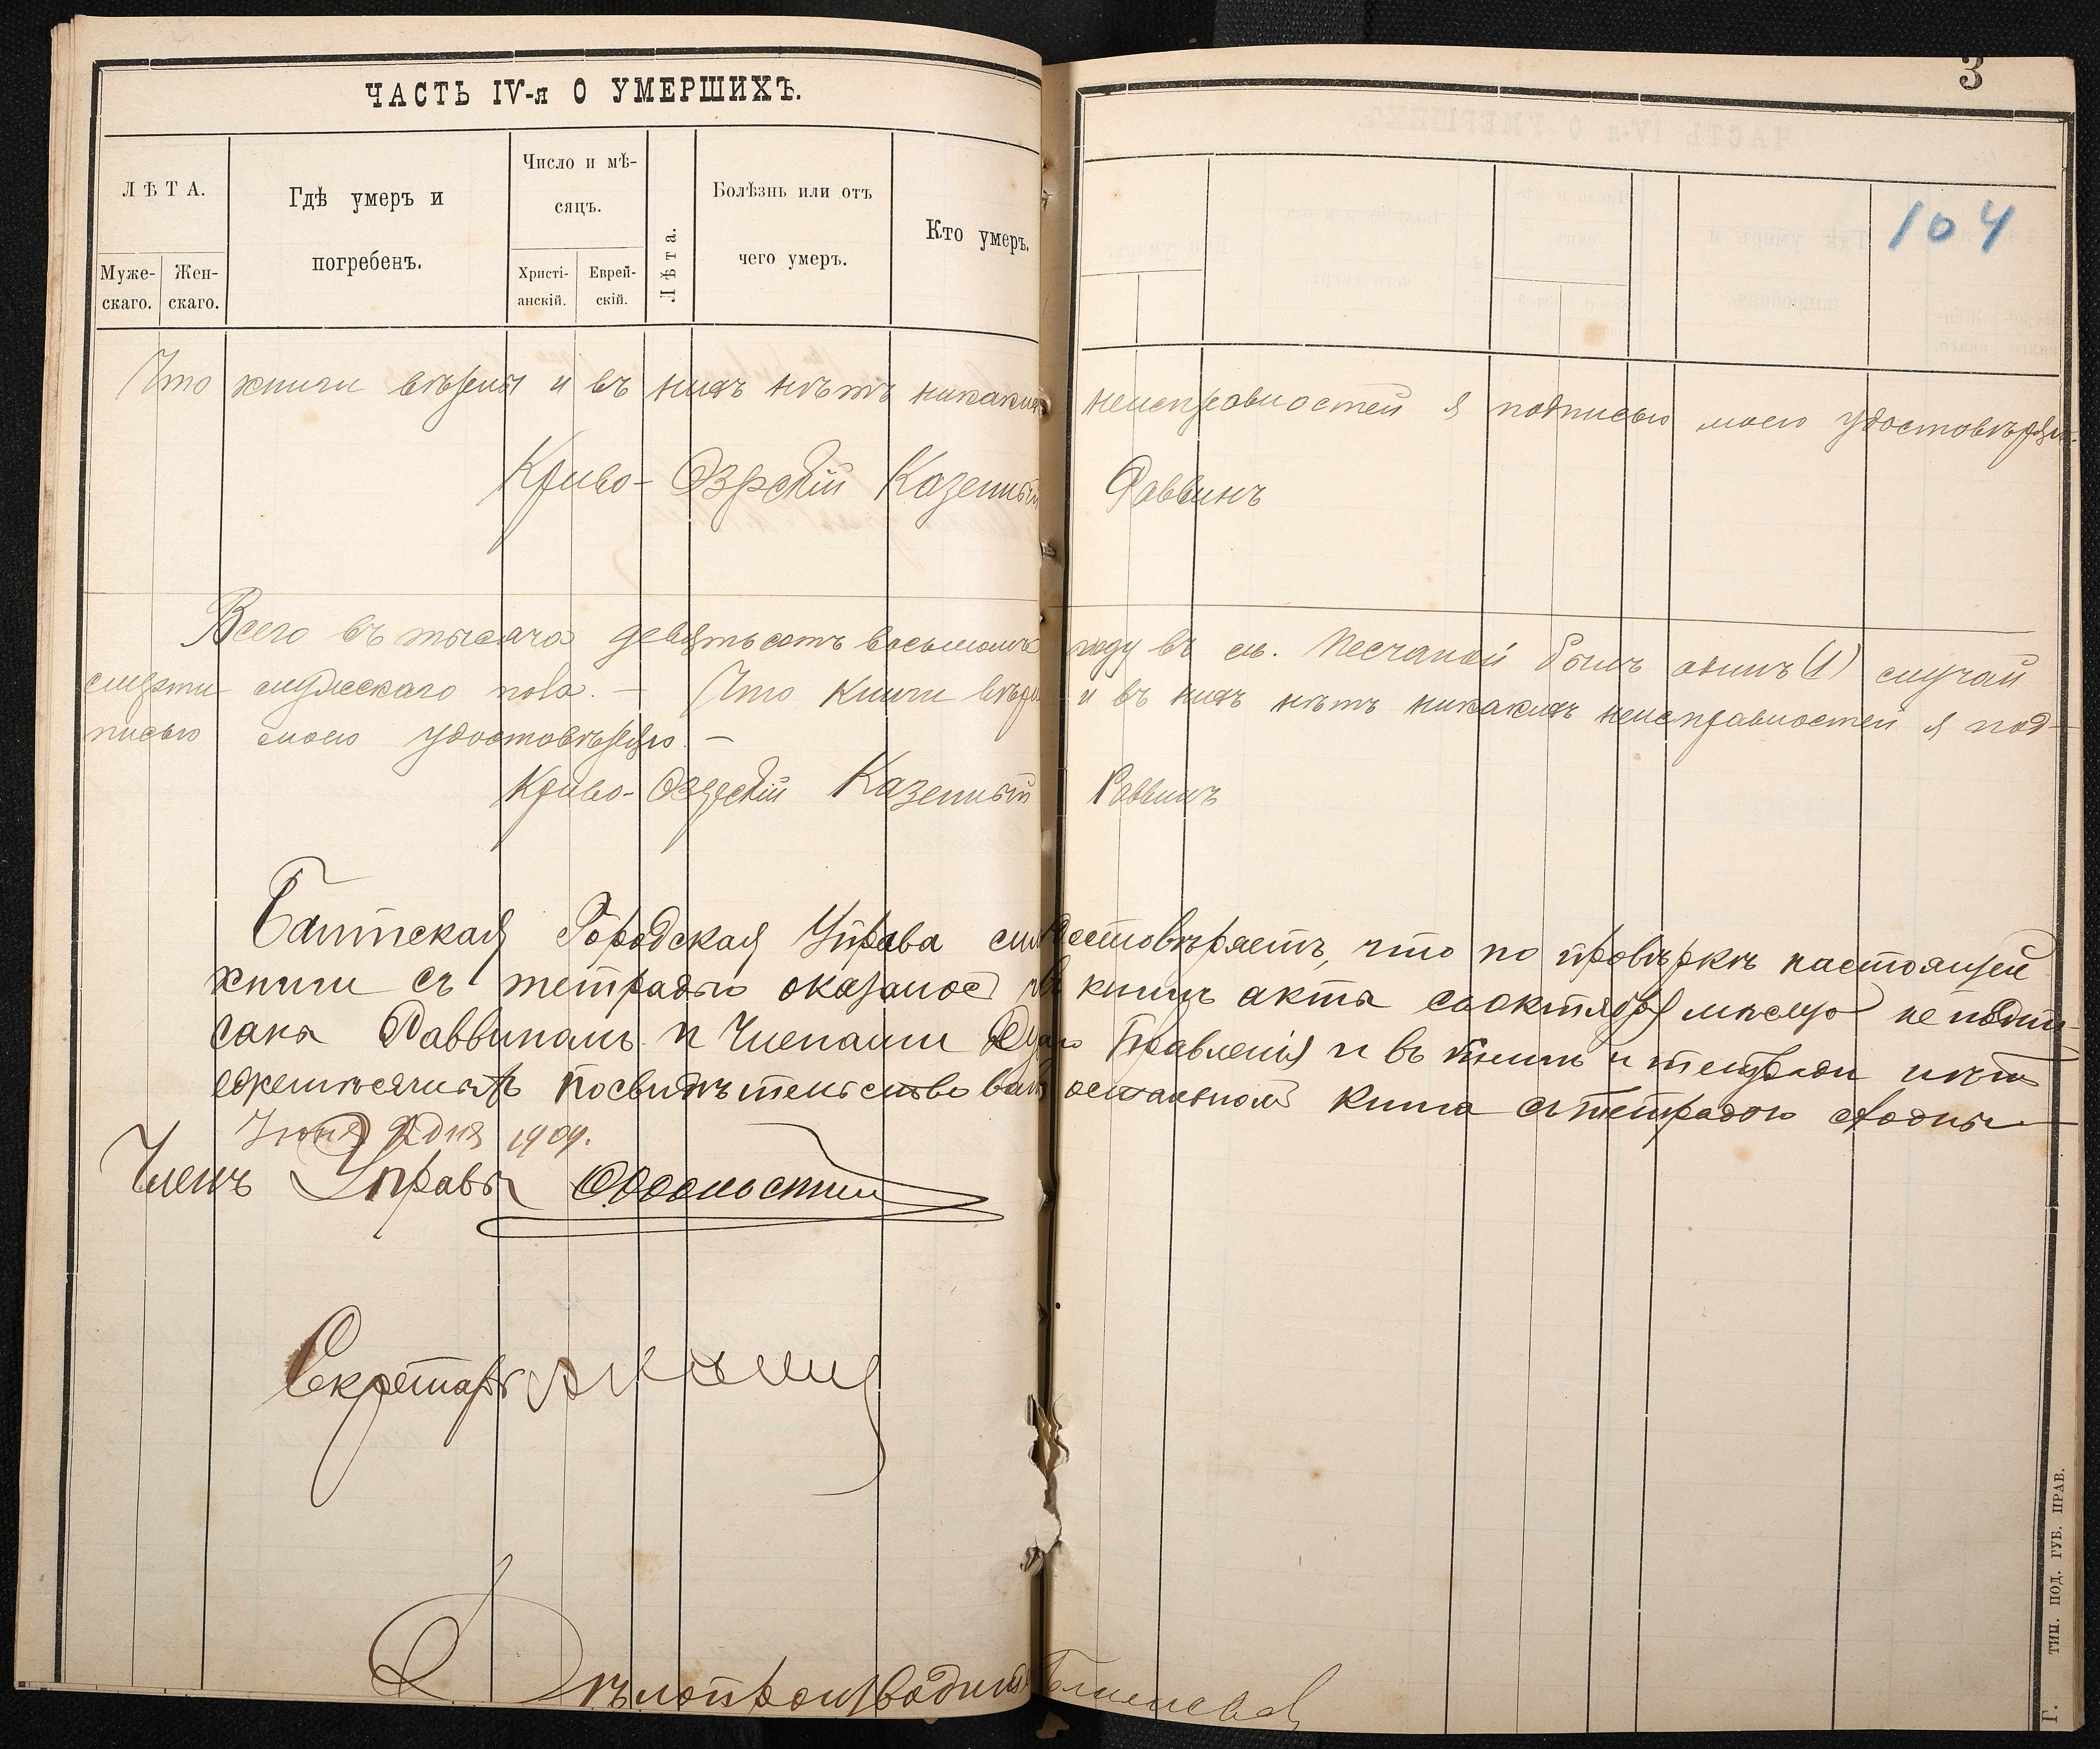 ЧАСТЬ IV-я О УМЕРШИХЪ.
3
104
ЛѢТА.
Муже-
скаго.
Жен-
скаго.
Гдѣ умеръ и
погребенъ.
Число и мѣ-
сяцъ.
Христі-
анскій.
Еврей-
скій.
Лѣта.
Болѣзнь или отъ
чего умеръ.
Кто умеръ.
Что книги вѣрны и въ нихъ нѣтъ никакихъ неисправностей я подписью моею удостовѣряю.
Криво-Озрскій Казенный Раввинъ
Всего въ тысяча девятьсотъ восьмомъ году въ м. Песчаной былъ одинъ (1) случай
смерти мужескаго пола. — Что книги вѣрны и въ нихъ нѣтъ никакихъ неисправностей я под-
писью моею удостовѣряю. —
Криво-Озерскій Казенный Раввинъ
Балтская Городская Управа симъ удостовѣряетъ, что по провѣркѣ настоящей
книги съ тетрадью оказалось въ книгѣ акта за октябрь мѣсяцъ не подпи-
сана Раввиномъ и Членами Дух. Правленія и въ книгѣ и тетради нѣтъ
ежемѣсячныхъ посвидѣтельствованій остальномъ книга съ тетрадью сходны
Іюня дня 1909.
Членъ Управы
Секретарь
Дѣлопроизводитель
Г. ТИП. ПОД. ГУБ. ПРАВ.